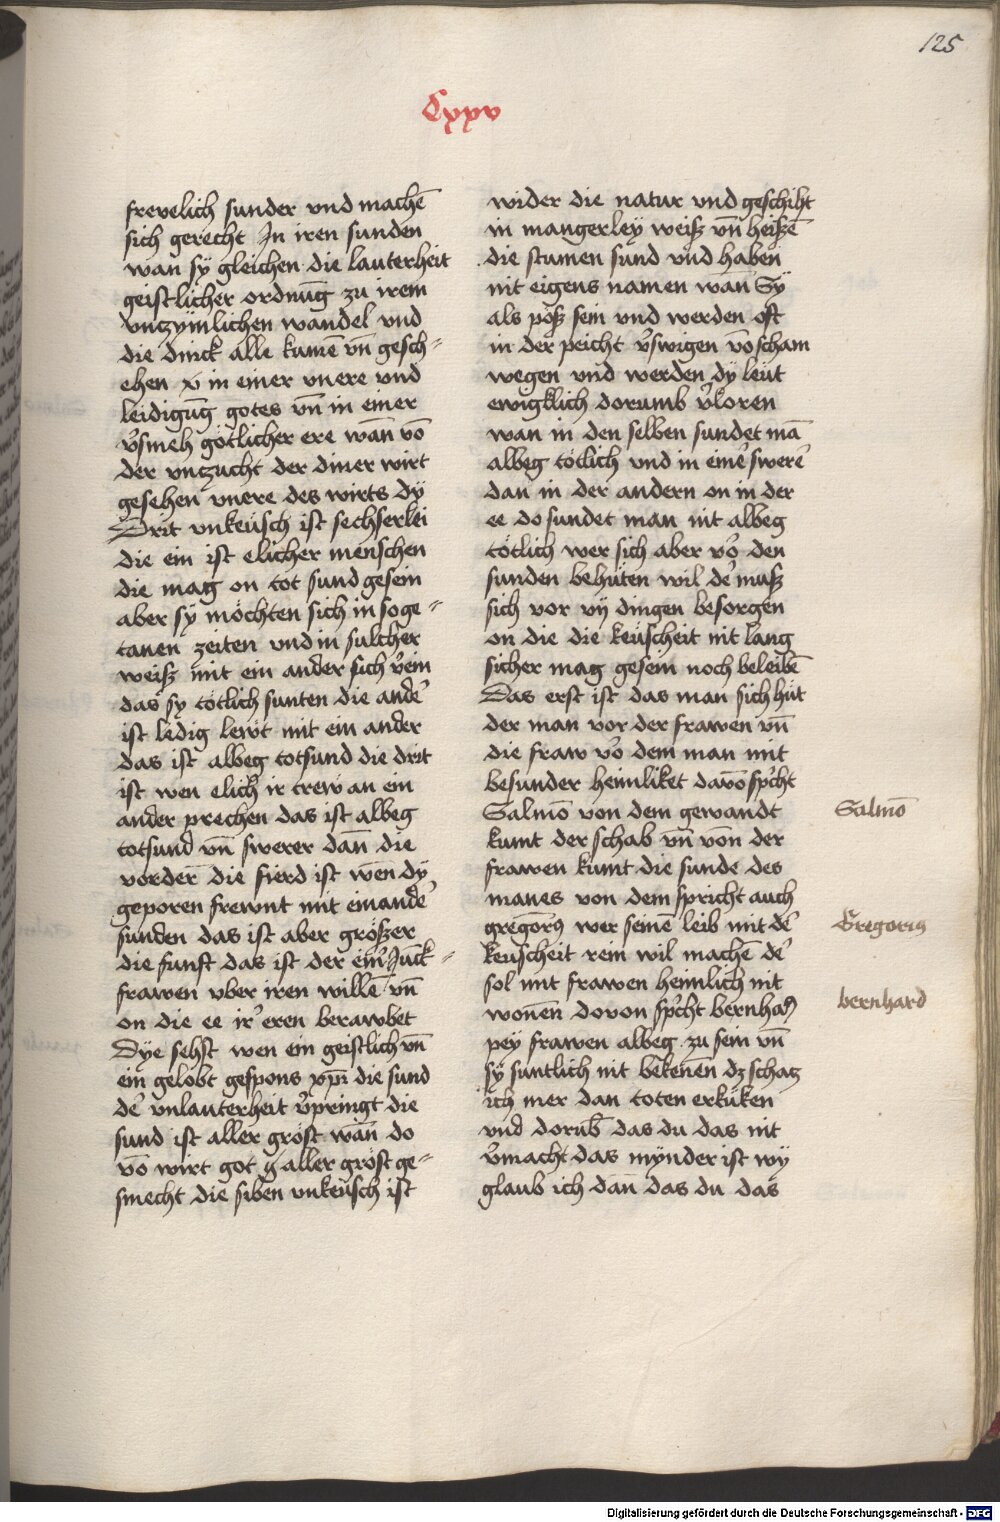 125
Cxxv
frevelich sunder vnd machē
sich gerecht In iren sunden
wan sÿ gleichen die lauterheit
geistlicher ordnūg zu irem
vnczÿmlichen wandel vnd
die dinck alle kumē vn̄ gesch⸗
ehen in einer vnere vnd
leidigūg gotes vn̄ in einer
v̓smeh götlicher ere wan vō
der vnzucht der diner wirt
gesehen vnere des wirts dÿ
Drit vnkeüsch ist sechserlei
die ein ist elicher menschen
die mag on tot sund gesein
aber sÿ möchten sich in soge⸗
tanen zeiten vnd in sulcher
weisz mit ein ander sich v̓ein
das sy tötlich sunten die ande᷑
ist ledig lewt mit ein ander
das ist albeg totsund die drit
ist wen elich ir trew an ein
ander prechen das ist albeg
totsund vn̄ swerer dan̄ die
vorder̄ die fierd ist wen̄ dÿ
geporen frewnt mit einande᷑
sunden das ist aber gröszer
die funft das ist der ein᷑ Jūck⸗
frawen vber iren willē vn̄
on die ee ir᷑ eren berawbet
Dÿe sehst wen ein geistlich vn̄
ein gelobt gespons xp̄i die sund
de᷑ vnlauterheit v̓pringt die
sund ist aller gröst wan̄ do
vō wirt got aller gröst ge⸗
smecht die siben vnkeüsch ist
wider die natur vnd geschiht
in mangerleÿ weisz vn̄ heiszē
die stumen sund vnd haben
nit eigens namen wan Sÿ
als pösz sein vnd werden oft
in der peicht v̓swigen vō scham
wegen vnd werden dÿ leüt
ewigklich dorumb v̓loren
wan in den selben sundet mā
albeg tötlich vnd in eine᷑ swerē
dan in der andern on in der
ee do sundet man nit albeg
tötlich wer sich aber vo᷑ den
sunden behüten wil de᷑ musz
sich vor vij dingen besorgen
on die die keüscheit nit lang
sicher mag gesein noch beleibē
Das erst ist das man sich hüt
der man vor der frawen vn̄
die fraw vo᷑ dem man mit
besunder heimliket davō sp̓cht
Salmō von dem gewandt
kumt der schab vn̄ von der
frawen kumt die sunde des
manes von dem spricht auch
gregori9 wer seinē leib mit de᷑
keuscheit rein wil machē de᷑
sol mit frawen heimlich nit
wonen̄ dovon sp̓cht bernhard
peÿ frawen albeg zu sein vn̄
sÿ suntlich nit bekenen̄ dz schatz
ich mer dan toten erküken
vnd dorūb das du das nit
v̓macht das mÿnder ist wÿ
glaub ich dan̄ das du das
Salmō
Gregorius
bernhard
Digitalisierung gefördert durch die Deutsche Forschungsgemeinschaft - DFG